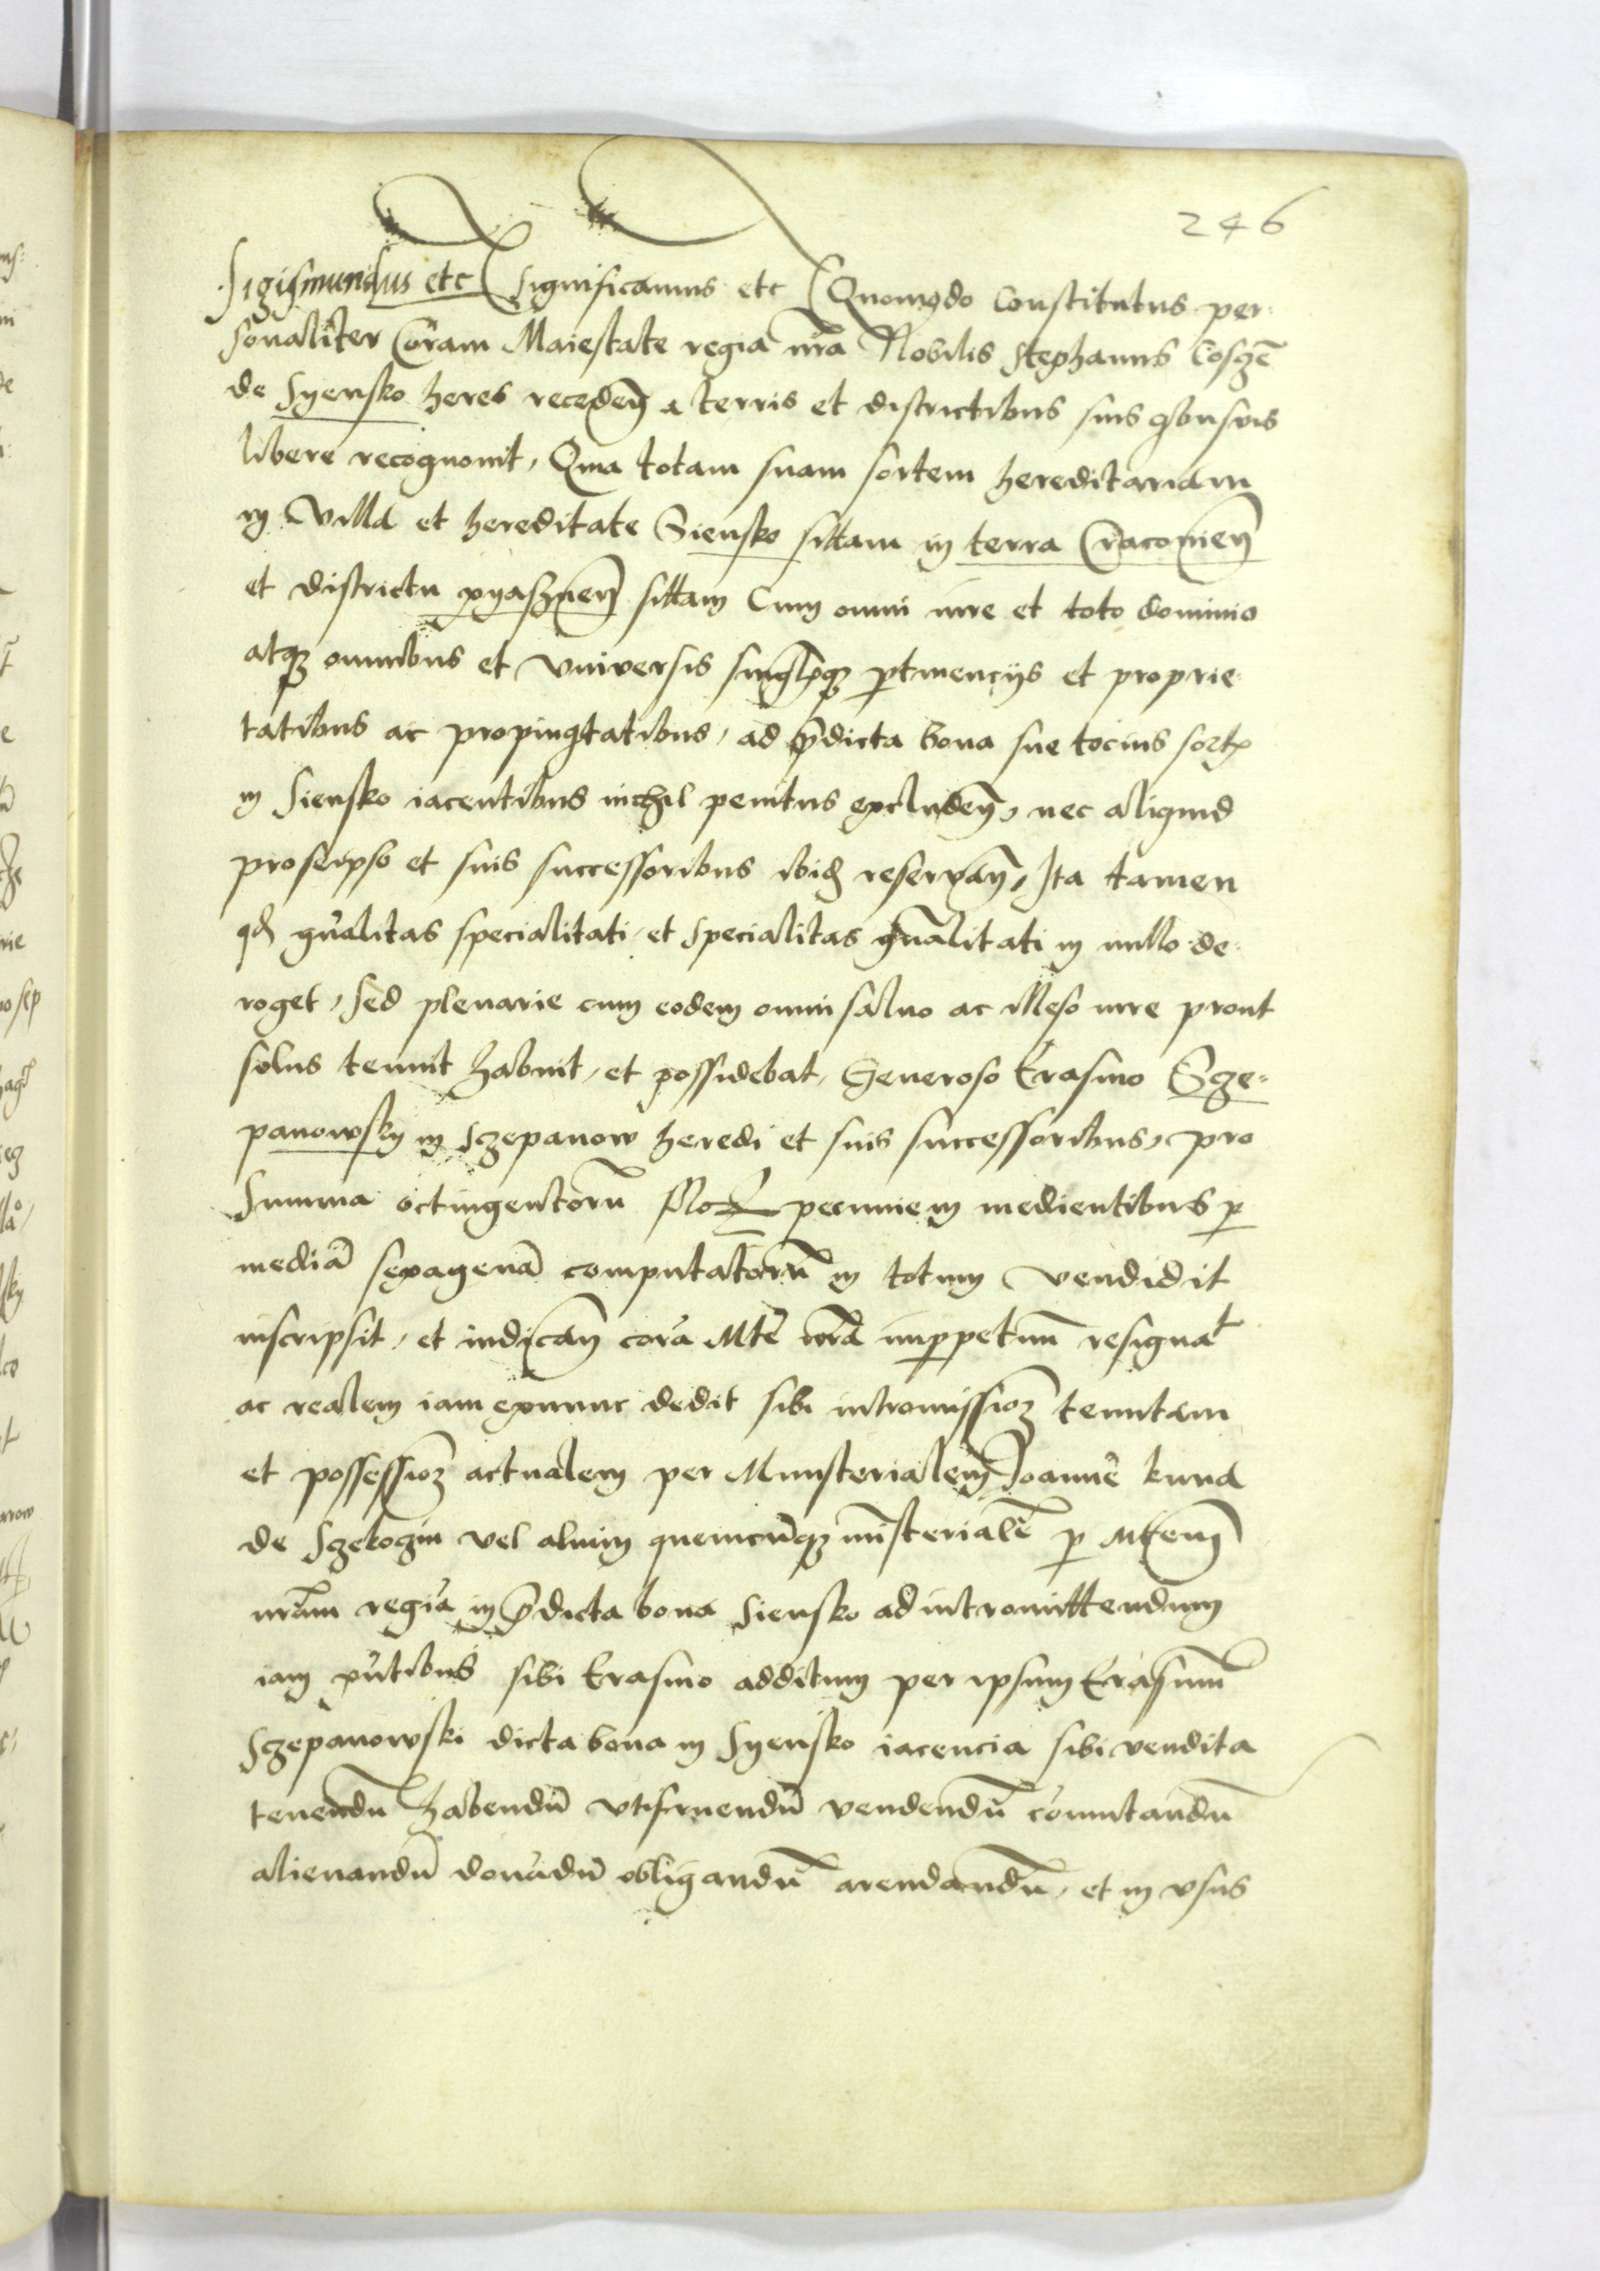 246
Sigismundus etc Significamus etc Quomodo Constitutus per
sonaliter Coram Maiestate regia nra Nobilis Stephanus
de Syensko heres receden a terris et districtibus suis
libere recognouit, Quia totam suam sortem hereditariam
in Villa et hereditate Siensko sittam in terra Cracouien
et districtu xyasznen sittam Cum omni iure et toto dominio
atqz omnibus et vniuersis singlisqz ptinencijs et proprie
tatibus ac propinqtatibus, ad pdicta bona sue tocius sortis
in Siensko iacentibus nichil penitus excluden, nec aliquid
proseipso et suis successoribus ibid reseruan, Ita tamen
qd gnalitas specialitati et specialitas gnalitati in nullo de
roget, sed plenarie cum eodem omni saluo ac illeso iure prout
solus tenuit habuit, et possidebat, Generoso Erasmo Scze
panowsky in Sczepanow heredi et suis successoribus, pro
Summa octingentoru flor pecunie in medientibus p
media sexagena computatoru in totum vendidit
inscripsit, et indican cora Mte nra imppetuu resignat
ac realem iam exnunc dedit sibi intromissioz tenutam
et possessioz actualem per Ministerialem Joanne kuna
de Sczekoczin vel alium quemcuqz misteriale p Mtem
nram regia in pdicta bona Siensko ad intromittendum
iam pntibus sibi Erasmo additum per ipsum Erasmu
Sczepanowski dicta bona in Syensko iacencia sibi vendita
tenendu habendu vtifruendu vendendu comutandu
alienandu donadu obligandu arendandu, et in vsus